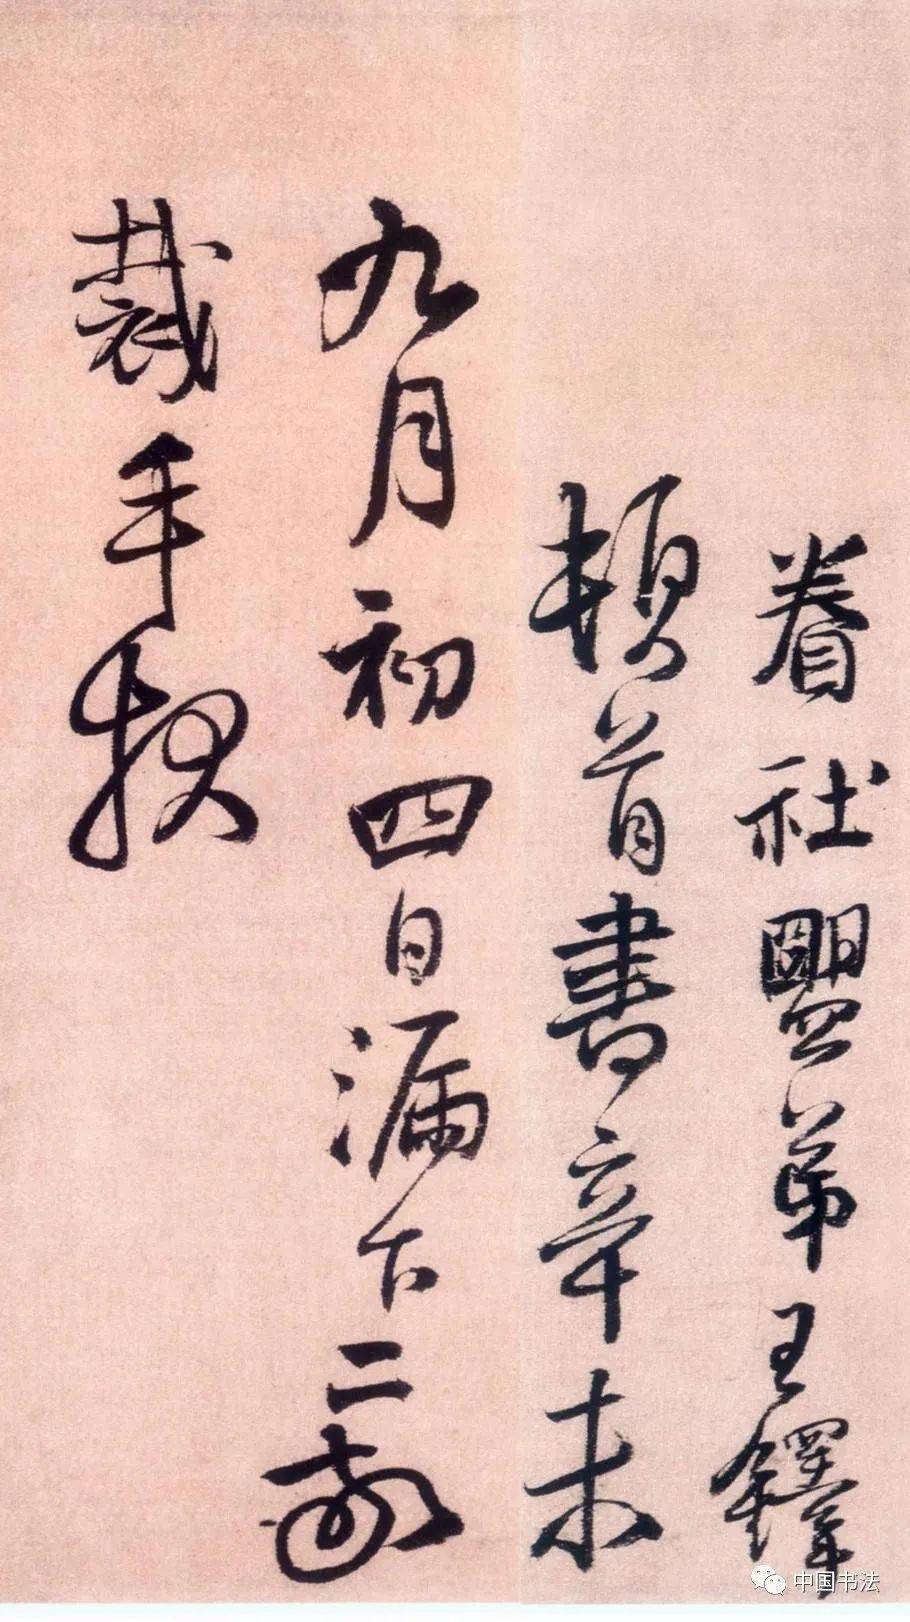 眷社盟弟王鐸
頓首書辛未
九月初四日漏下二
裁手
中国书法